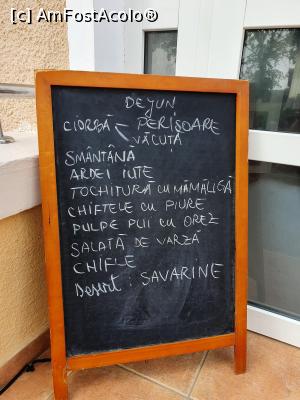 [c] AmFostAcolo®
DEJUN
CIORBĂ PERIȘOARE
VĂCUȚĂ
SMÂNTÂNĂ
ARDEI IUTE
TOCHITURĂ CU MĂMĂLIGĂ
CHIFTELE CU PIURE
PULPE PUI CU OREZ
SALATĂ DE VARZĂ
CHIFLE
Desert: SAVARINE